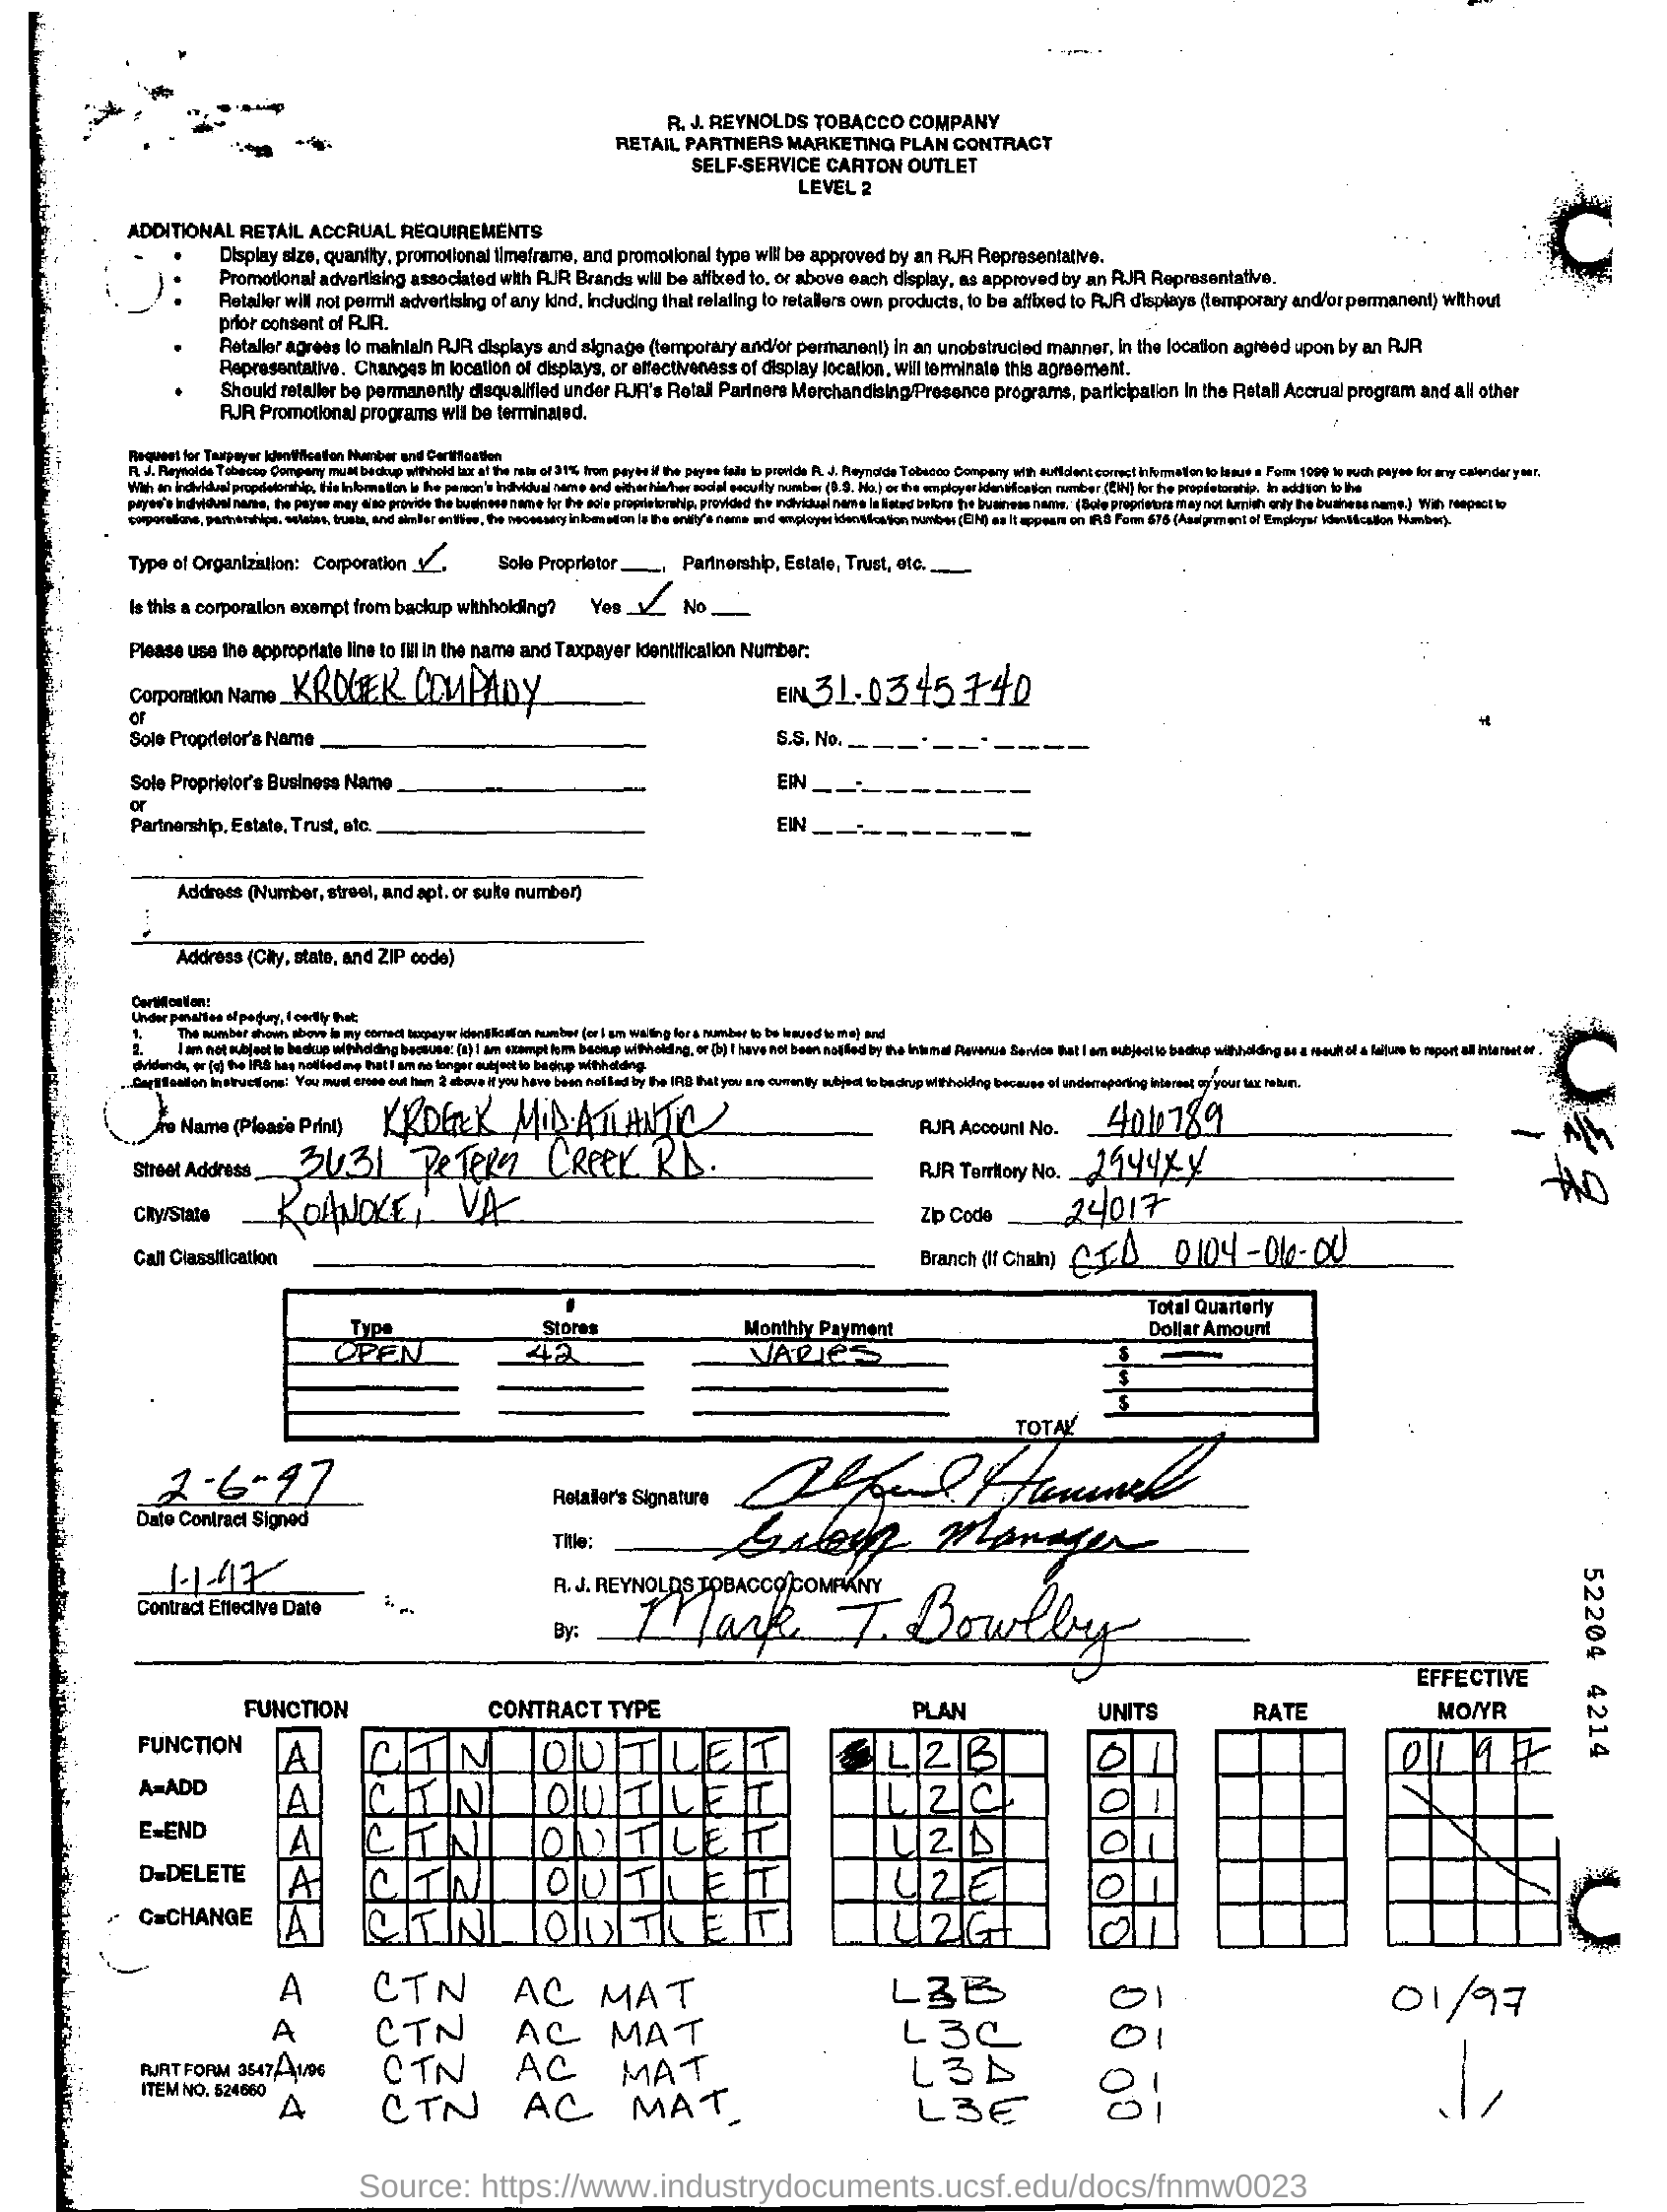 R. J. REYNOLDS TOBACCO COMPANY
RETAIL PARTNERS MARKETING PLAN CONTRACT
SELF-SERVICE CARTON OUTLET
LEVEL 2
ADDITIONAL RETAIL ACCRUAL REQUIREMENTS
• Display size, quantity, promotional timeframe, and promotional type will be approved by an RJR Representative.
• Promotional advertising associated with RJR Brands will be affixed to, or above each display, as approved by an RJR Representative.
• Retailer will not permit advertising of any kind, including that relating to retailers own products, to be affixed to RJR displays (temporary and/or permanent) without
prior consent of RJR.
• Retailer agrees to maintain RJR displays and signage (temporary and/or permanent) in an unobstructed manner, in the location agreed upon by an RJR
Representative. Changes in location of displays, or effectiveness of display location, will terminate this agreement.
• Should retailer be permanently disqualified under RJR's Retail Partners Merchandising/Presence programs, participation in the Retail Accrual program and all other
RJR Promotional programs will be terminated.
Request for Taxpayer Identification Number and Certification
R. J. Reynolds Tobacco Company must backup withhold tax at the rate of 31% from payee if the payee fails to provide R. J. Reynolds Tobacco Company with sufficient correct information to issue a Form 1099 to such payee for any calendar year.
With an individual proprietorship, this information is the person's individual name and either his/her social security number (S.S. No.) or the employer identification number (EIN) for the proprietorship. In addition to the
payee's individual name, the payee may also provide the business name for the sole proprietorship, provided the individual name is listed before the business name. (Sole proprietors may not furnish only the business name.) With respect to
corporations, partnerships, estates, trusts, and similar entities, the necessary information is the entity's name and employer identification number (EIN) as it appears on IRS Form 575 (Assignment of Employer Identification Number).
Type of Organization: Corporation ✓, Sole Proprietor ___, Partnership, Estate, Trust, etc. ___
Is this a corporation exempt from backup withholding? Yes ✓ No ___
Please use the appropriate line to fill in the name and Taxpayer Identification Number:
Corporation Name KROGER COMPANY EIN 31-0345740
or
Sole Proprietor's Name S.S. No.
Sole Proprietor's Business Name EIN
or
Partnership, Estate, Trust, etc. EIN
Address (Number, street, and apt. or suite number)
Address (City, state, and ZIP code)
Certification:
Under penalties of perjury, I certify that:
1. The number shown above is my correct taxpayer identification number (or I am waiting for a number to be issued to me) and
2. I am not subject to backup withholding because: (a) I am exempt form backup withholding, or (b) I have not been notified by the Internal Revenue Service that I am subject to backup withholding as a result of a failure to report all interest or
dividends, or (c) the IRS has notified me that I am no longer subject to backup withholding.
Certification Instructions: You must cross out item 2 above if you have been notified by the IRS that you are currently subject to backup withholding because of underreporting interest on your tax return.
Name (Please Print) KROGER MID-ATLANTIC RJR Account No. 406789
Street Address 3631 PETERS CREEK RD. RJR Territory No. 2944XX
City/State ROANOKE, VA Zip Code 24017
Call Classification Branch (If Chain) CID 0104-06-00
Type # Stores Monthly Payment Total Quarterly Dollar Amount
OPEN 42 VARIES $ —
$
$
TOTAL
2-6-97
Date Contract Signed
Retailer's Signature Alfred Hammel
Title: Group Manager
1-1-97
Contract Effective Date
R. J. REYNOLDS TOBACCO COMPANY
By: Mark T. Bowlby
52204 4214
FUNCTION CONTRACT TYPE PLAN UNITS RATE EFFECTIVE MO/YR
FUNCTION A CTN OUTLET L2B 01 0197
A=ADD A CTN OUTLET L2C 01
E=END A CTN OUTLET L2D 01
D=DELETE A CTN OUTLET L2E 01
C=CHANGE A CTN OUTLET L2G 01
A CTN AC MAT L3B 01 01/97
A CTN AC MAT L3C 01
RJRT FORM 3547A 1/96 A CTN AC MAT L3D 01
ITEM NO. 524660
A CTN AC MAT. L3E 01
Source: https://www.industrydocuments.ucsf.edu/docs/fnmw0023